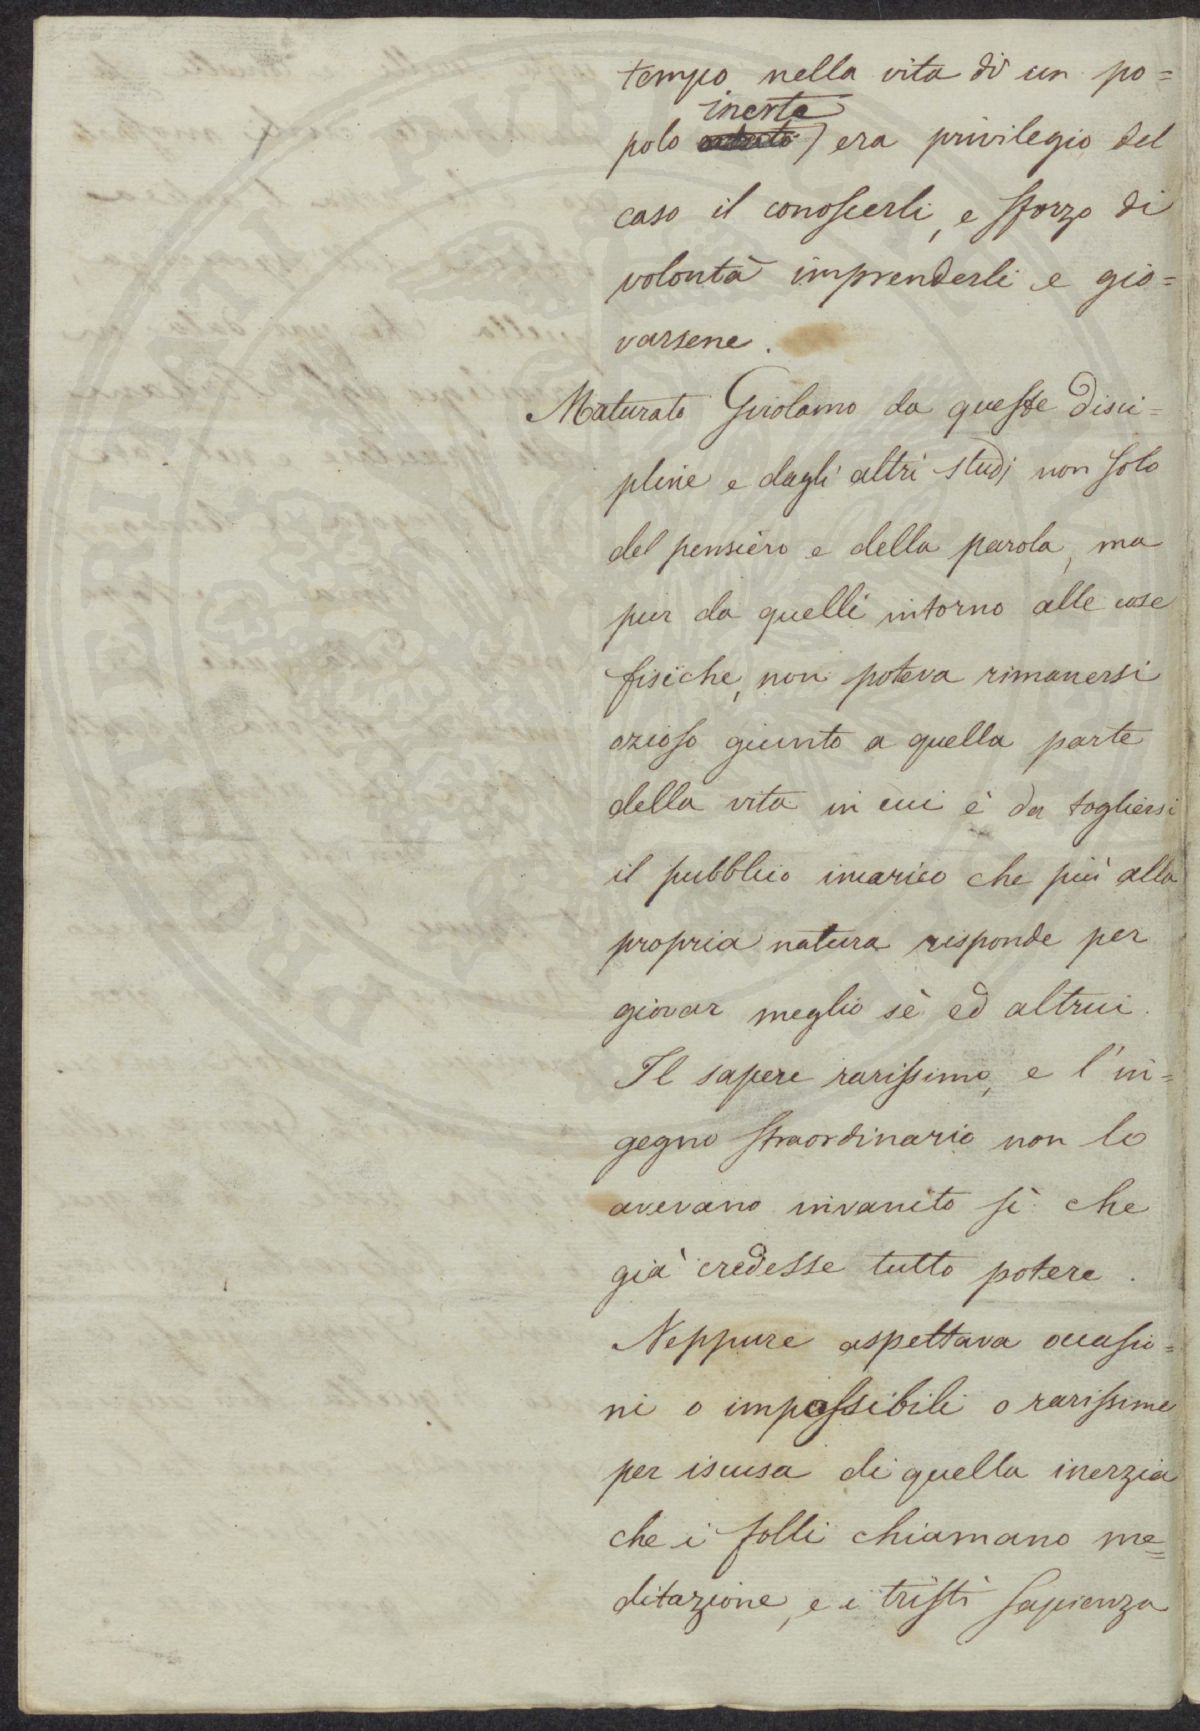 tempo nella vita di un po=
inerte
polo) era privilegio del
caso il conoscerli, e sforzo di
volontà imprenderli e gio=
varsene.
Maturato Girolamo da queste disci=
pline e dagli altri studj non solo
del pensiero e della parola, ma
pur da quelli intorno alle cose
fisiche, non poteva rimanersi
ozioso giunto a quella parte
della vita in cui è da togliersi
il pubblico incarico che più alla
propria natura risponde per
giovar meglio sè ed altrui.
Il sapere rarissimo, e l'in=
gegno straordinario non lo
avevano invanito sì che
già credesse tutto potere.
Neppure aspettava occasio=
ni o impossibili o rarissime
per iscusa di quella inerzia
che i folli chiamano me=
ditazione, e i tristi sapienza